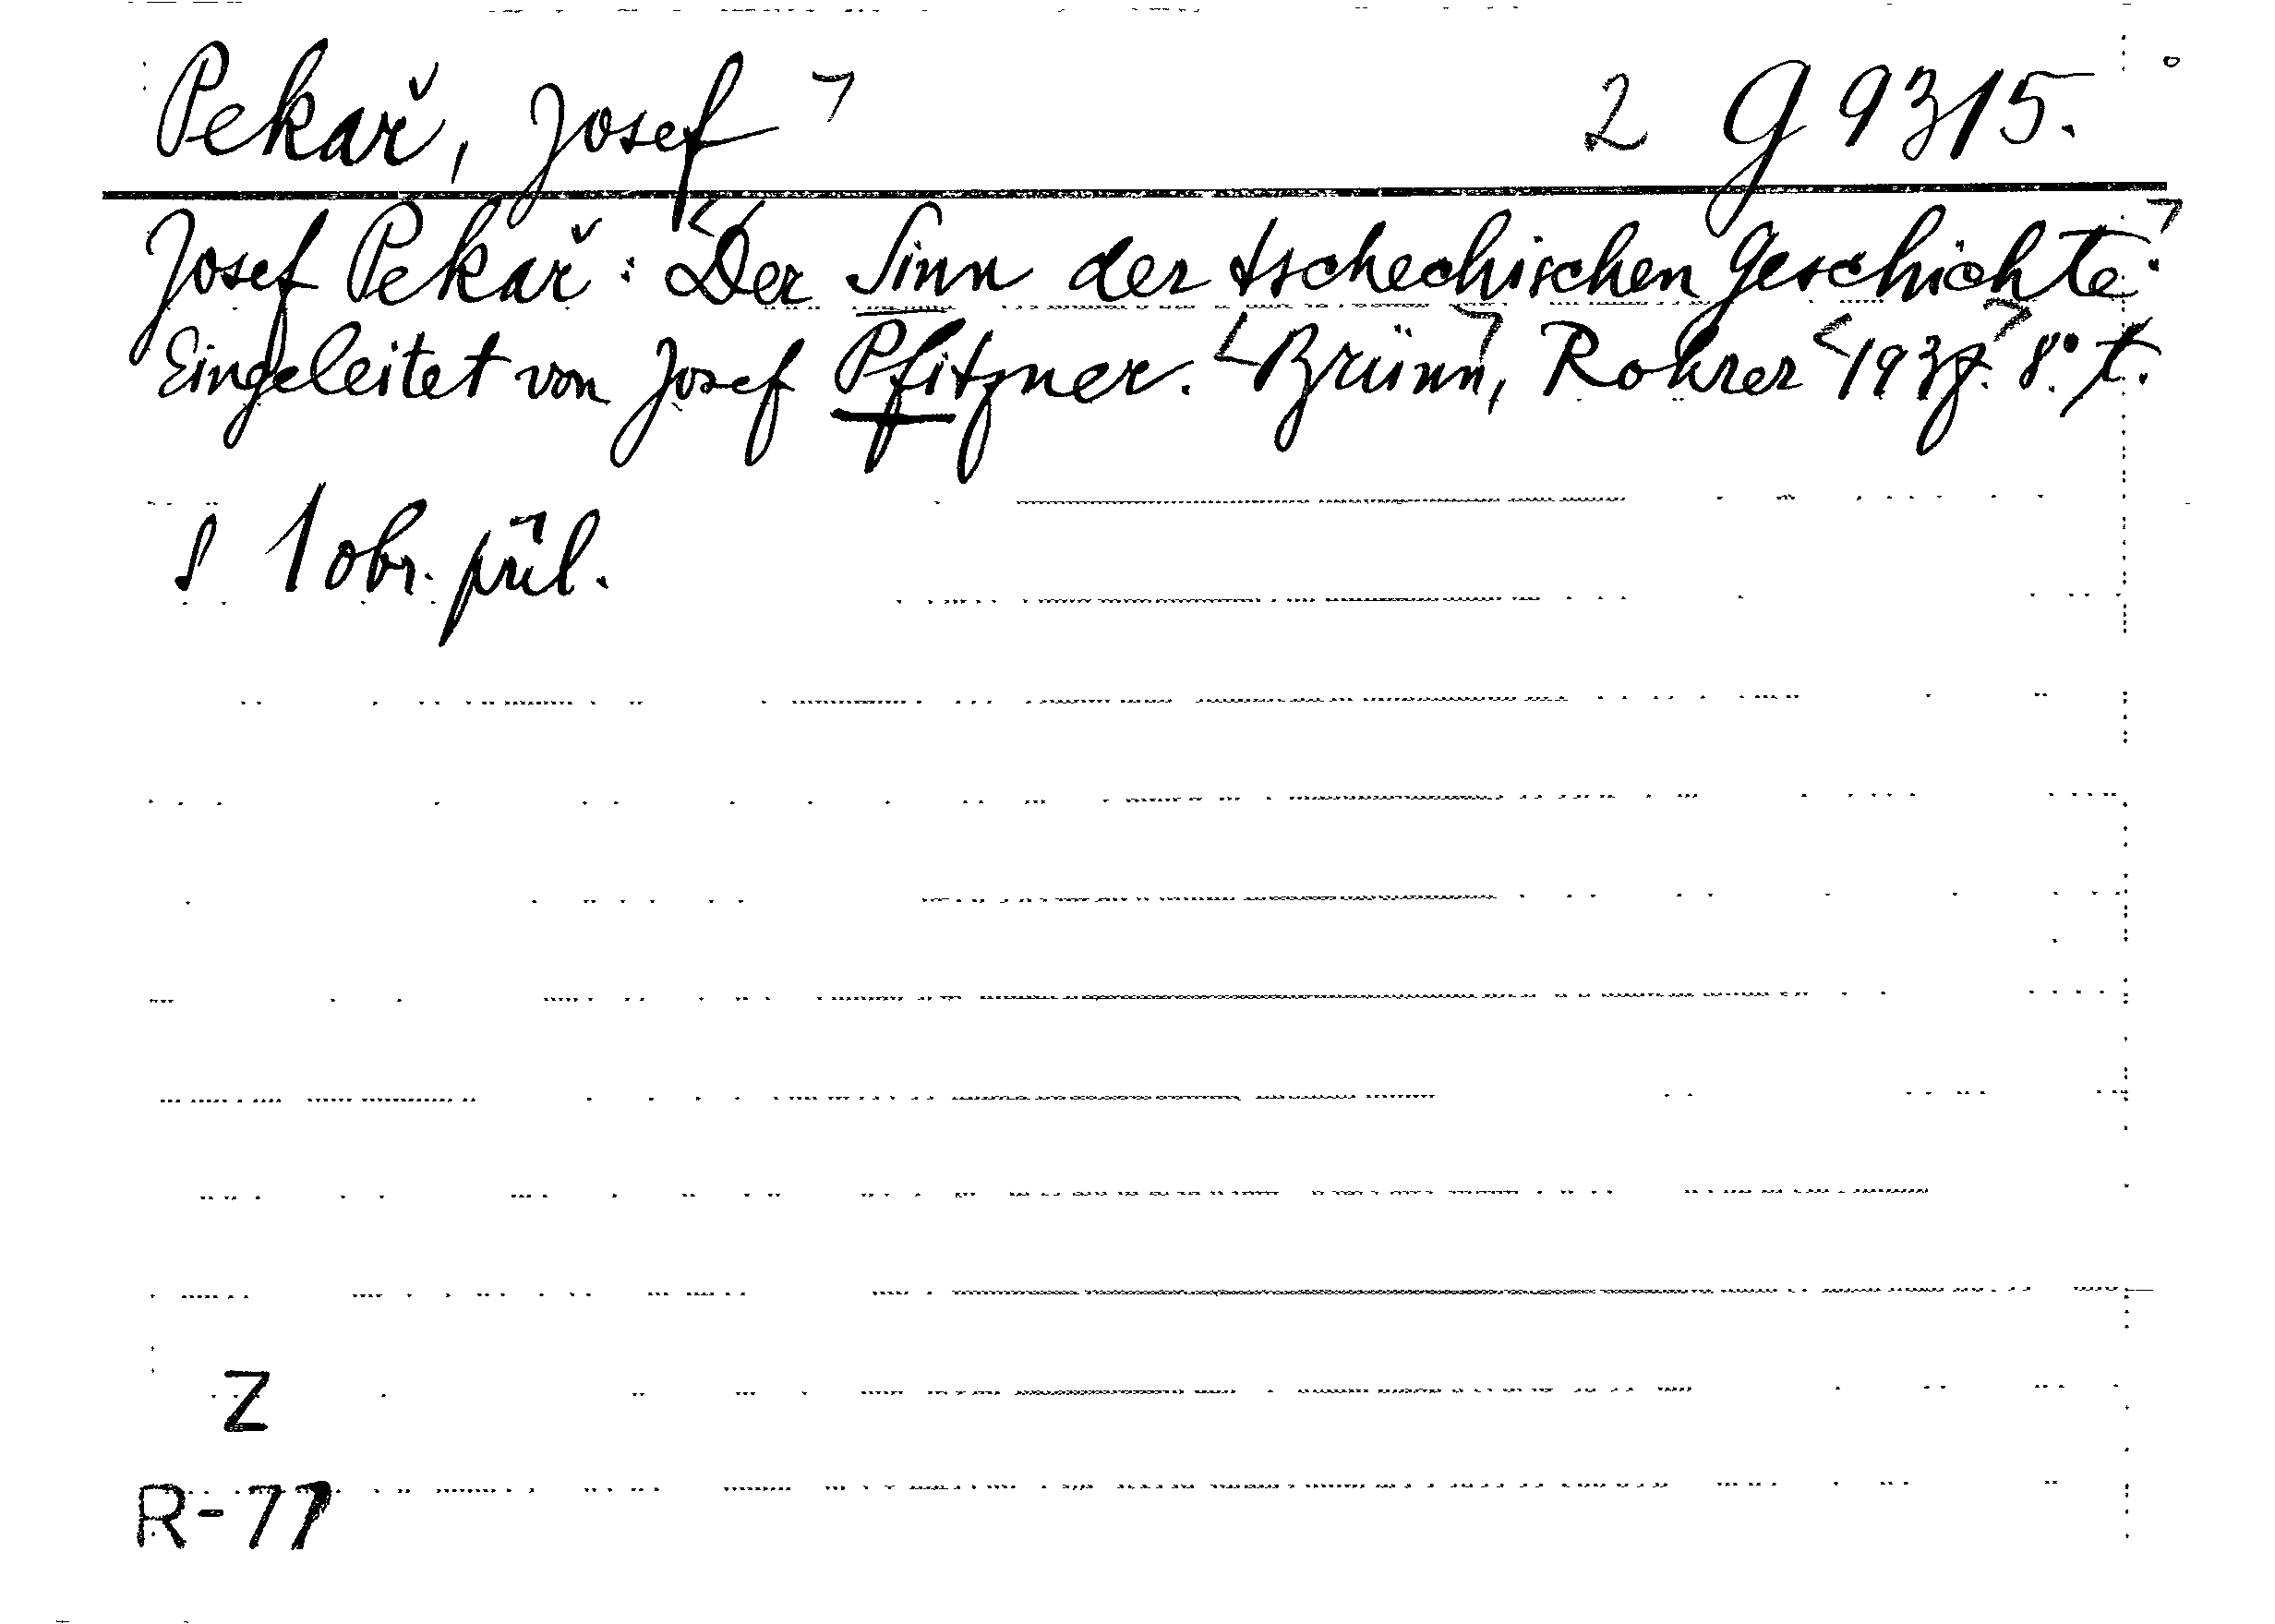 Pekař, Josef ㄱ 2 G 9315.
Josef Pekař: <Der Sinn der tschechischen Geschichte.ㄱ
Eingeleitet von Josef Pfitzner. <Brünnㄱ, Rohrer <1937.ㄱ 8°. t.
s 1 obr. příl.
Z
R-77